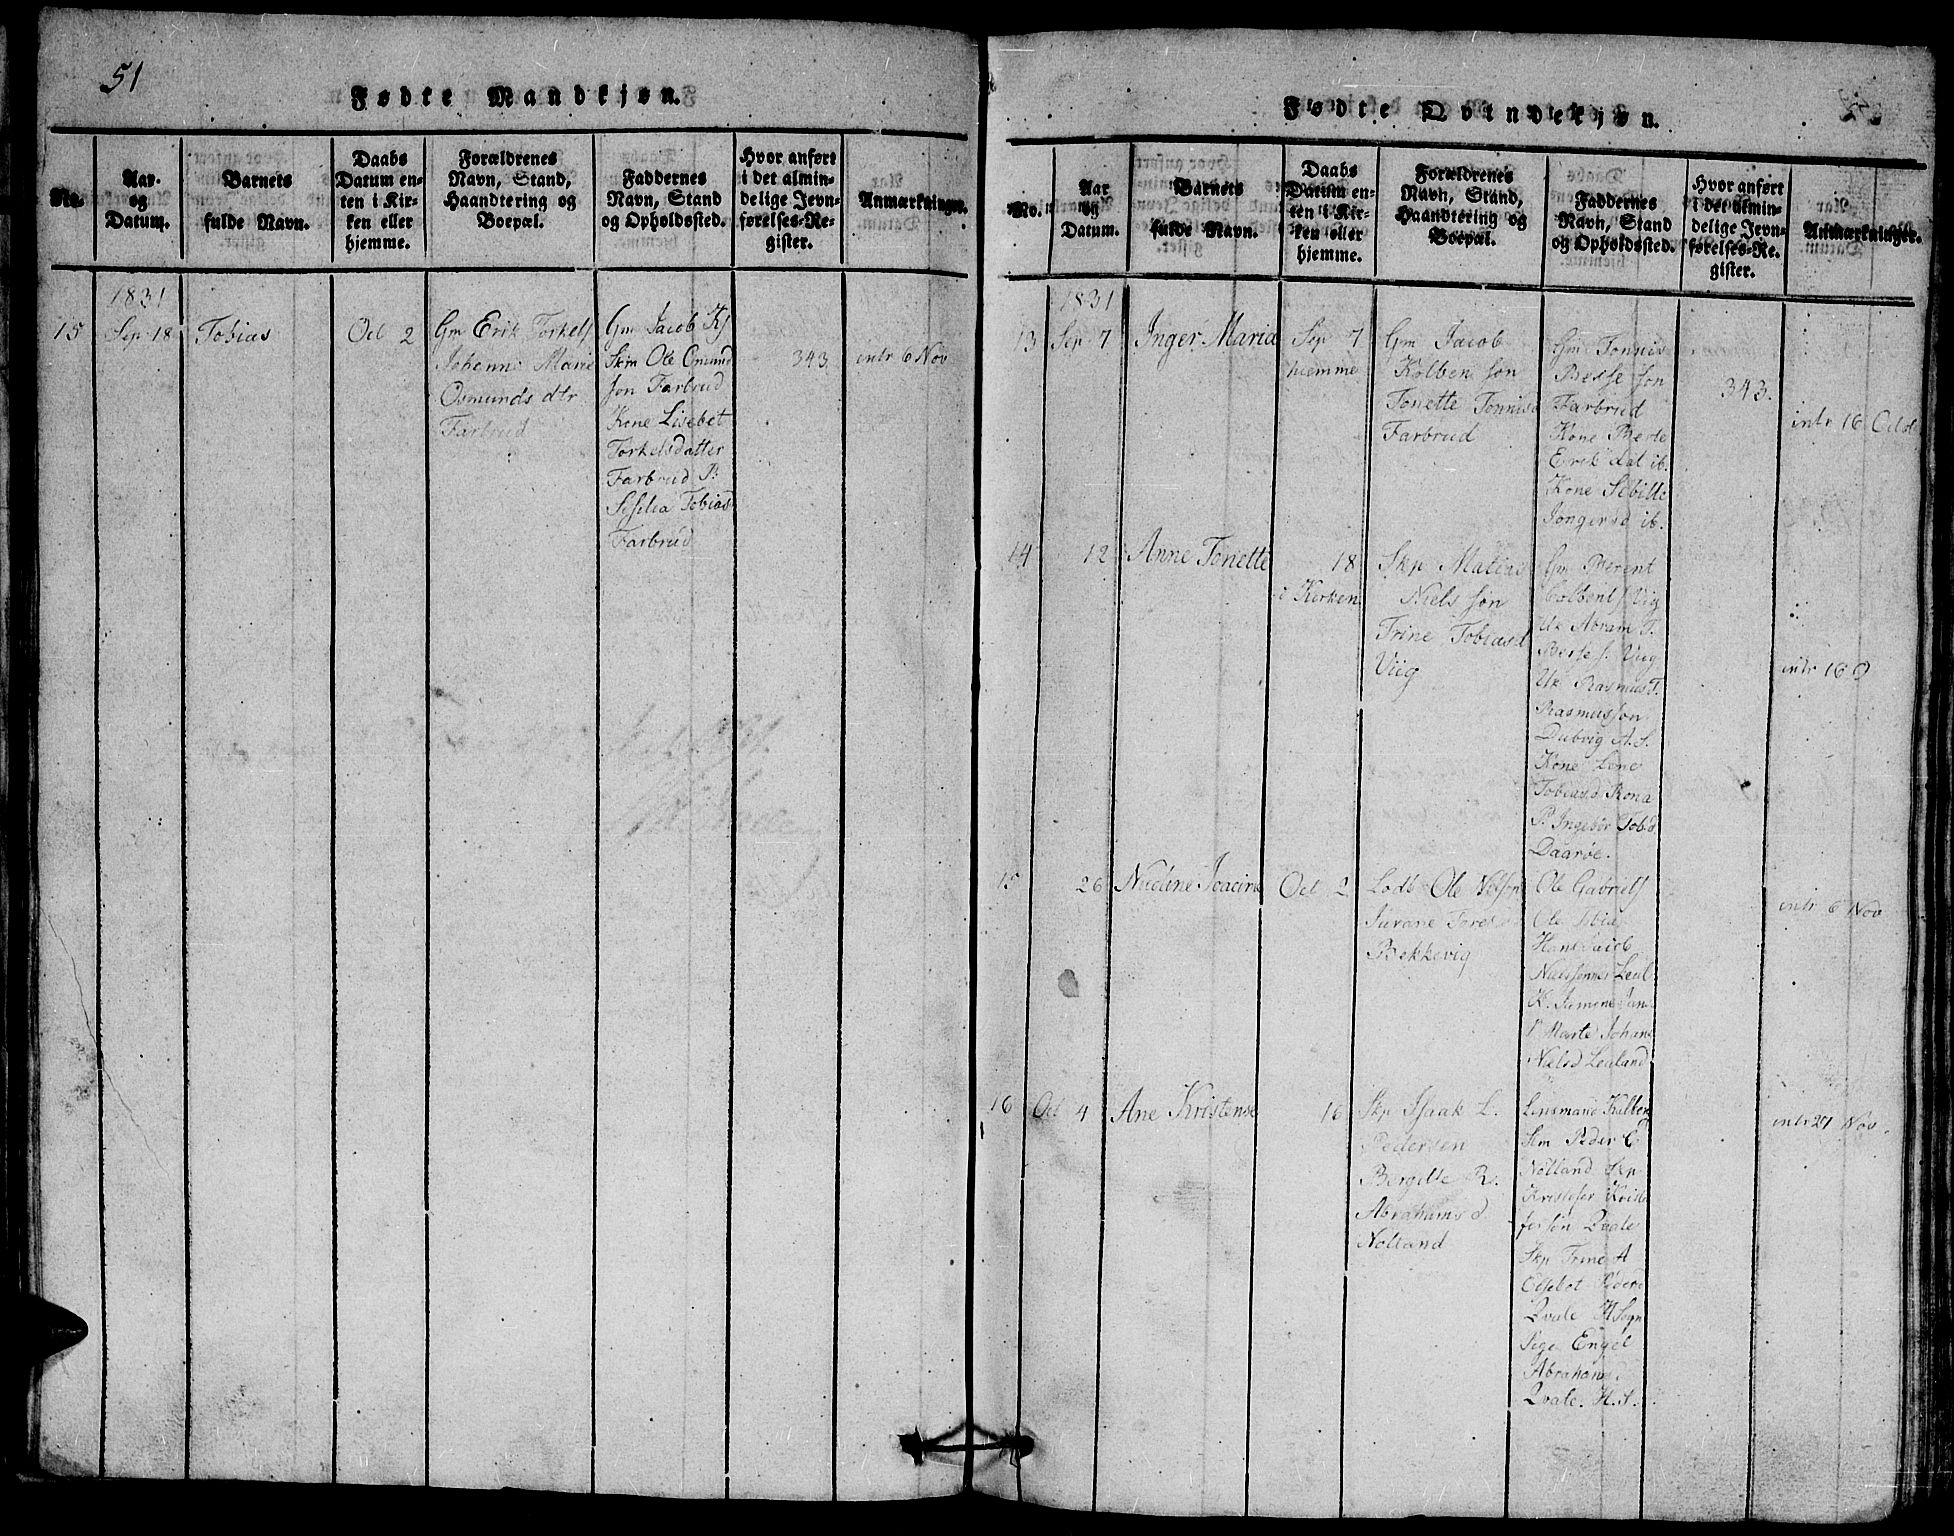 51
Fødte Mandkjøn.
No.
Aar og Datum.
Barnets fulde Navn.
Daabs Datum enten i Kirken eller hjemme.
Forældrenes Navn, Stand, Haandtering og Boepæl.
Faddernes Navn, Stand og Opholdssted.
Hvor anført i det almindelige Jevnførelses-Register.
Anmærkninger.
1831
15
Sep 18
Tobias
Oct 2
Gm Erik Torkels
Johanne Marie
Osmunds dtr
Farbrud
Gm Jacob K
Skp Ole Omund
son Farbrud
Kone Lisebet
Torkelsdatter
Farbrud P:
Sisilia Tobiasd
Farbrud
343
intr 6 Nov
Fødte Qvindekjøn.
No.
Aar og Datum.
Barnets fulde Navn.
Daabs Datum enten i Kirken eller hjemme.
Forældrenes Navn, Stand, Haandtering og Boepæl.
Faddernes Navn, Stand og Opholdssted.
Hvor anført i det almindelige Jevnførelses-Register.
Anmærkninger.
1831
13
Sep 7
Inger Maria
Sep 7
hiemme
Gm Jacob
Kolben søn
Tonette Tonnisd
Farbrud
Gm Tonnis
Berse søn
Farbrud
Kone Berte
Erik dat ib.
Kone Sibille
ib.
343.
intr 16 Octob
14
12
Anne Tonette
18
i Kirken
Skp Matias
Niels søn
Trine Tobiasd
Viig
Gm Berent
Viig
Uk Abram T.
Berse s. Viig
Uk Rasmus T.
Rasmussøn
Dubvig A. S.
Kone Lene
Tobiasd Rona
P. Ingebor Tobd
Daarøe.
intr 16 O
15
26
Joacine
Oct 2
Lodb Ole Nilsøn
Bekkevig
Ole Gabriels
Ole Tobia
Hans Jacob
K.
P Marte Johane
Nielsd
intr 6 Nov
16
Oct 4
Ane Kristense
16
Skp Isaak L.
Pedersen
Bergitte R.
Abrahams d
Nolland
Lensmand Kolben
Gm Peder
Nolland Skp
Kristofer Kristo
fersøn Qvale
Skp Trine A
Qvale H Sogn
Pige Engel
Abrahamsd
Qvale. H. S.
intr 27 Nov.